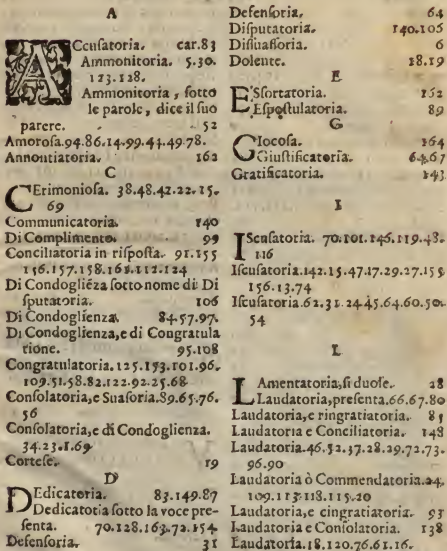 A
ACcusatoria. car.83
Ammonitoria. 5.30.
123.128.
Ammonitoria, sotto
le parole, dice il suo
parere. 52
Amorosa.94.86.14.99.41.49.78.
Annontiatoria. 162
C
CErimoniosa. 38.48.42.22.15.
69
Communicatoria. 140
Di Complimento. 99
Conciliatoria in risposta. 91.155
156.157.158.161.112.124
Di Condogliēza sotto nome di Di
sputatoria. 106
Di Condoglienza. 84.57.97.
Di Condoglienza, e di Congratula
tione. 95.108
Congratulatoria. 125.153.101.96.
109.51.58.82.122.92.25.68
Consolatoria, e Suasoria.89.65.76.
56
Consolatoria, e di Condoglienza.
34.23.1.69
Cortese. 19
D
DEdicatoria. 83.149.87
Dedicatotia sotto la voce pre-
senta. 70.128.163.72.154
Defensoria. 31
Defensoria. 64
Disputatoria. 140.106
Disuasoria. 6
Dolente. 18.19
E
ESsortatoria. 152
Espostulatoria. 89
G
GIocosa. 164
Giustificatoria. 64.67
Gratificatoria. 143
I
ISensatoria. 70.101.146.119.48.
116
Iscusatoria.142.15.47.17.29.27.155
156.13.74
Iscusatoria.62.31.24.45.64.60.50.
54
L
LAmentatoria, si duole. 28
Laudatoria, presenta.66.67.80
Laudatoria, e ringratiatoria. 85
Laudatoria e Conciliatoria. 148
Laudatoria.46.52.37.28.29.72.73.
96.90
Laudatoria ò Commendatoria.24.
109.113.118.115.20
Laudatoria, e cingratiatoria. 93
Laudatoria e Consolatoria. 138
Laudatoria.18.120.76.61.16.